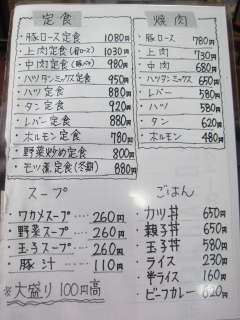 定食
・豚ロース定食 1080円
・上肉定食(肩ロース) 1030円
・中肉定食(豚バラ) 980円
・ハツタンミックス定食 950円
・ハツ定食 880円
・タン定食 920円
・レバー定食 880円
・ホルモン定食 780円
・野菜炒め定食 800円
・モツ煮定食(冬期) 880円
焼肉
・豚ロース 780円
・上肉 730円
・中肉 680円
・ハツタンミックス 650円
・レバー 580円
・ハツ 580円
・タン 620円
・ホルモン 480円
スープ
・ワカメスープ・・・・260円
・野菜スープ・・・・260円
・玉子スープ・・・・260円
・豚汁・・・・110円
※大盛り100円高
ごはん
・カツ丼 650円
・親子丼 650円
・玉子丼 580円
・ライス 230円
・半ライス 160円
・ビーフカレー 620円